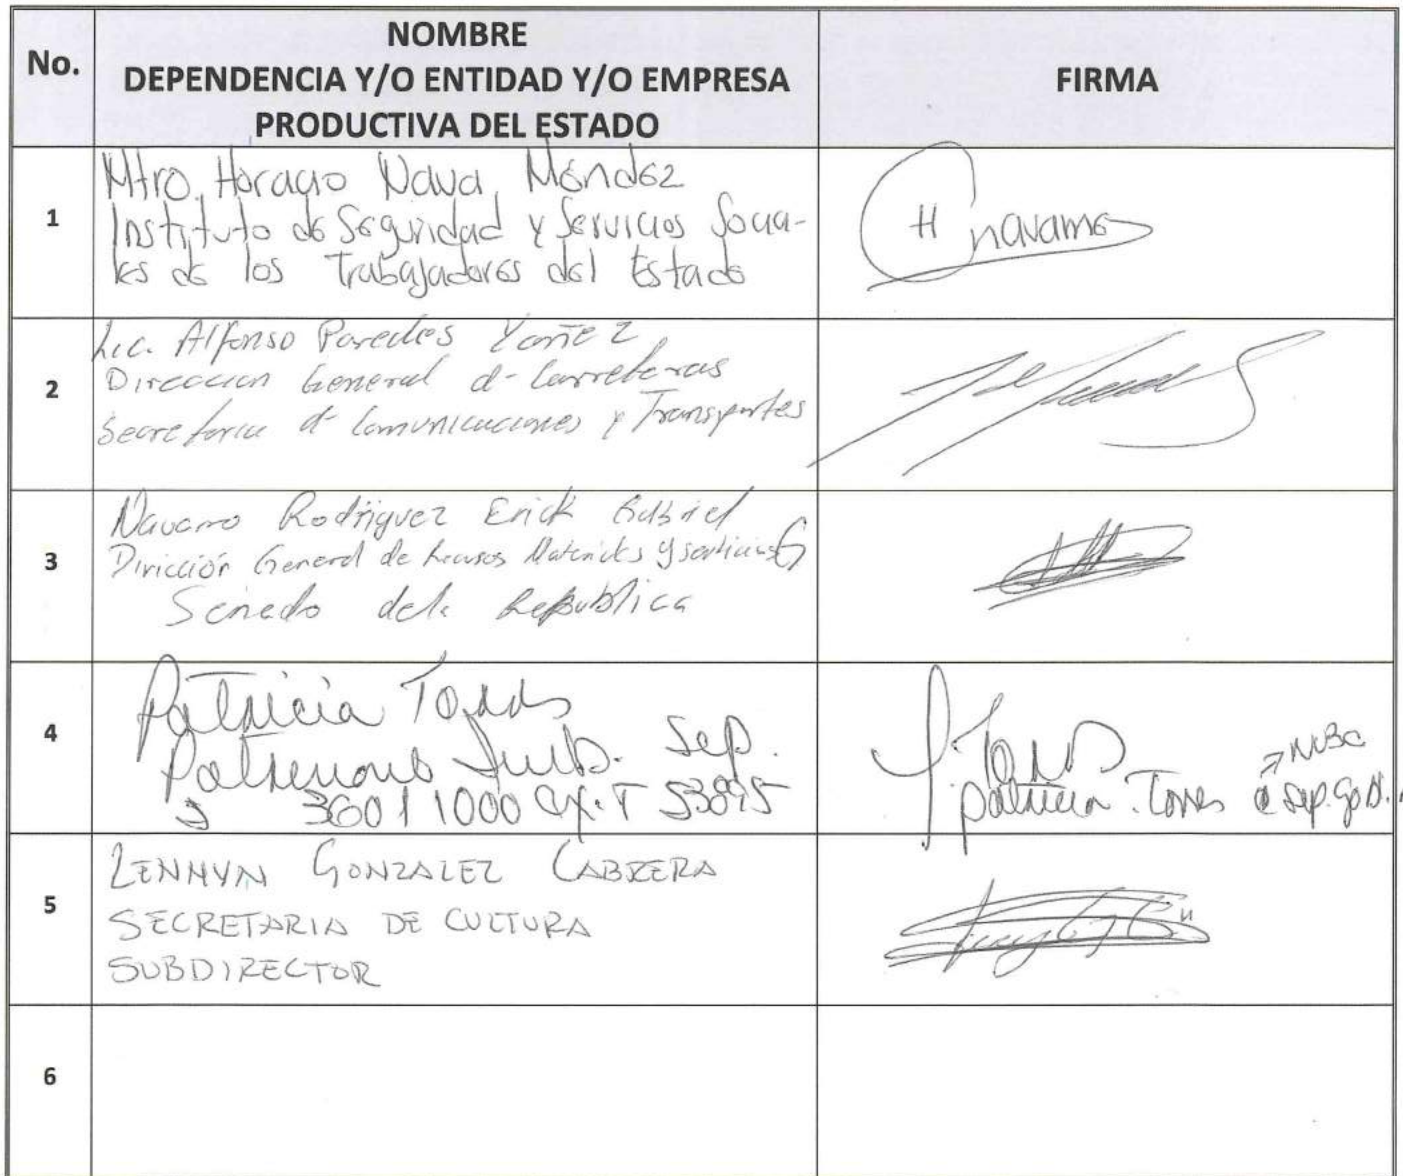 No.
NOMBRE
DEPENDENCIA Y/O ENTIDAD Y/O EMPRESA
PRODUCTIVA DEL ESTADO
FIRMA
1
Mtro. Horacio Nava Méndez
Instituto de Seguridad y Servicios Socia-
les de los Trabajadores del Estado
H navame
2
Lic. Alfonso Paredes Yañez
Dirección General d- Carreteras
Secretaria d- Comunicaciones y Transportes
3
Navarro Rodriguez Erick Gabriel
Dirección General de Recursos Materiales y servicios G
Senado dela Republica
4
Patricia Torres
Sep.
36011000 ext 53095
P. Torres
patricia.torres @ sep.gob.
5
LENNYN GONZALEZ CABRERA
SECRETARIA DE CULTURA
SUBDIRECTOR
6